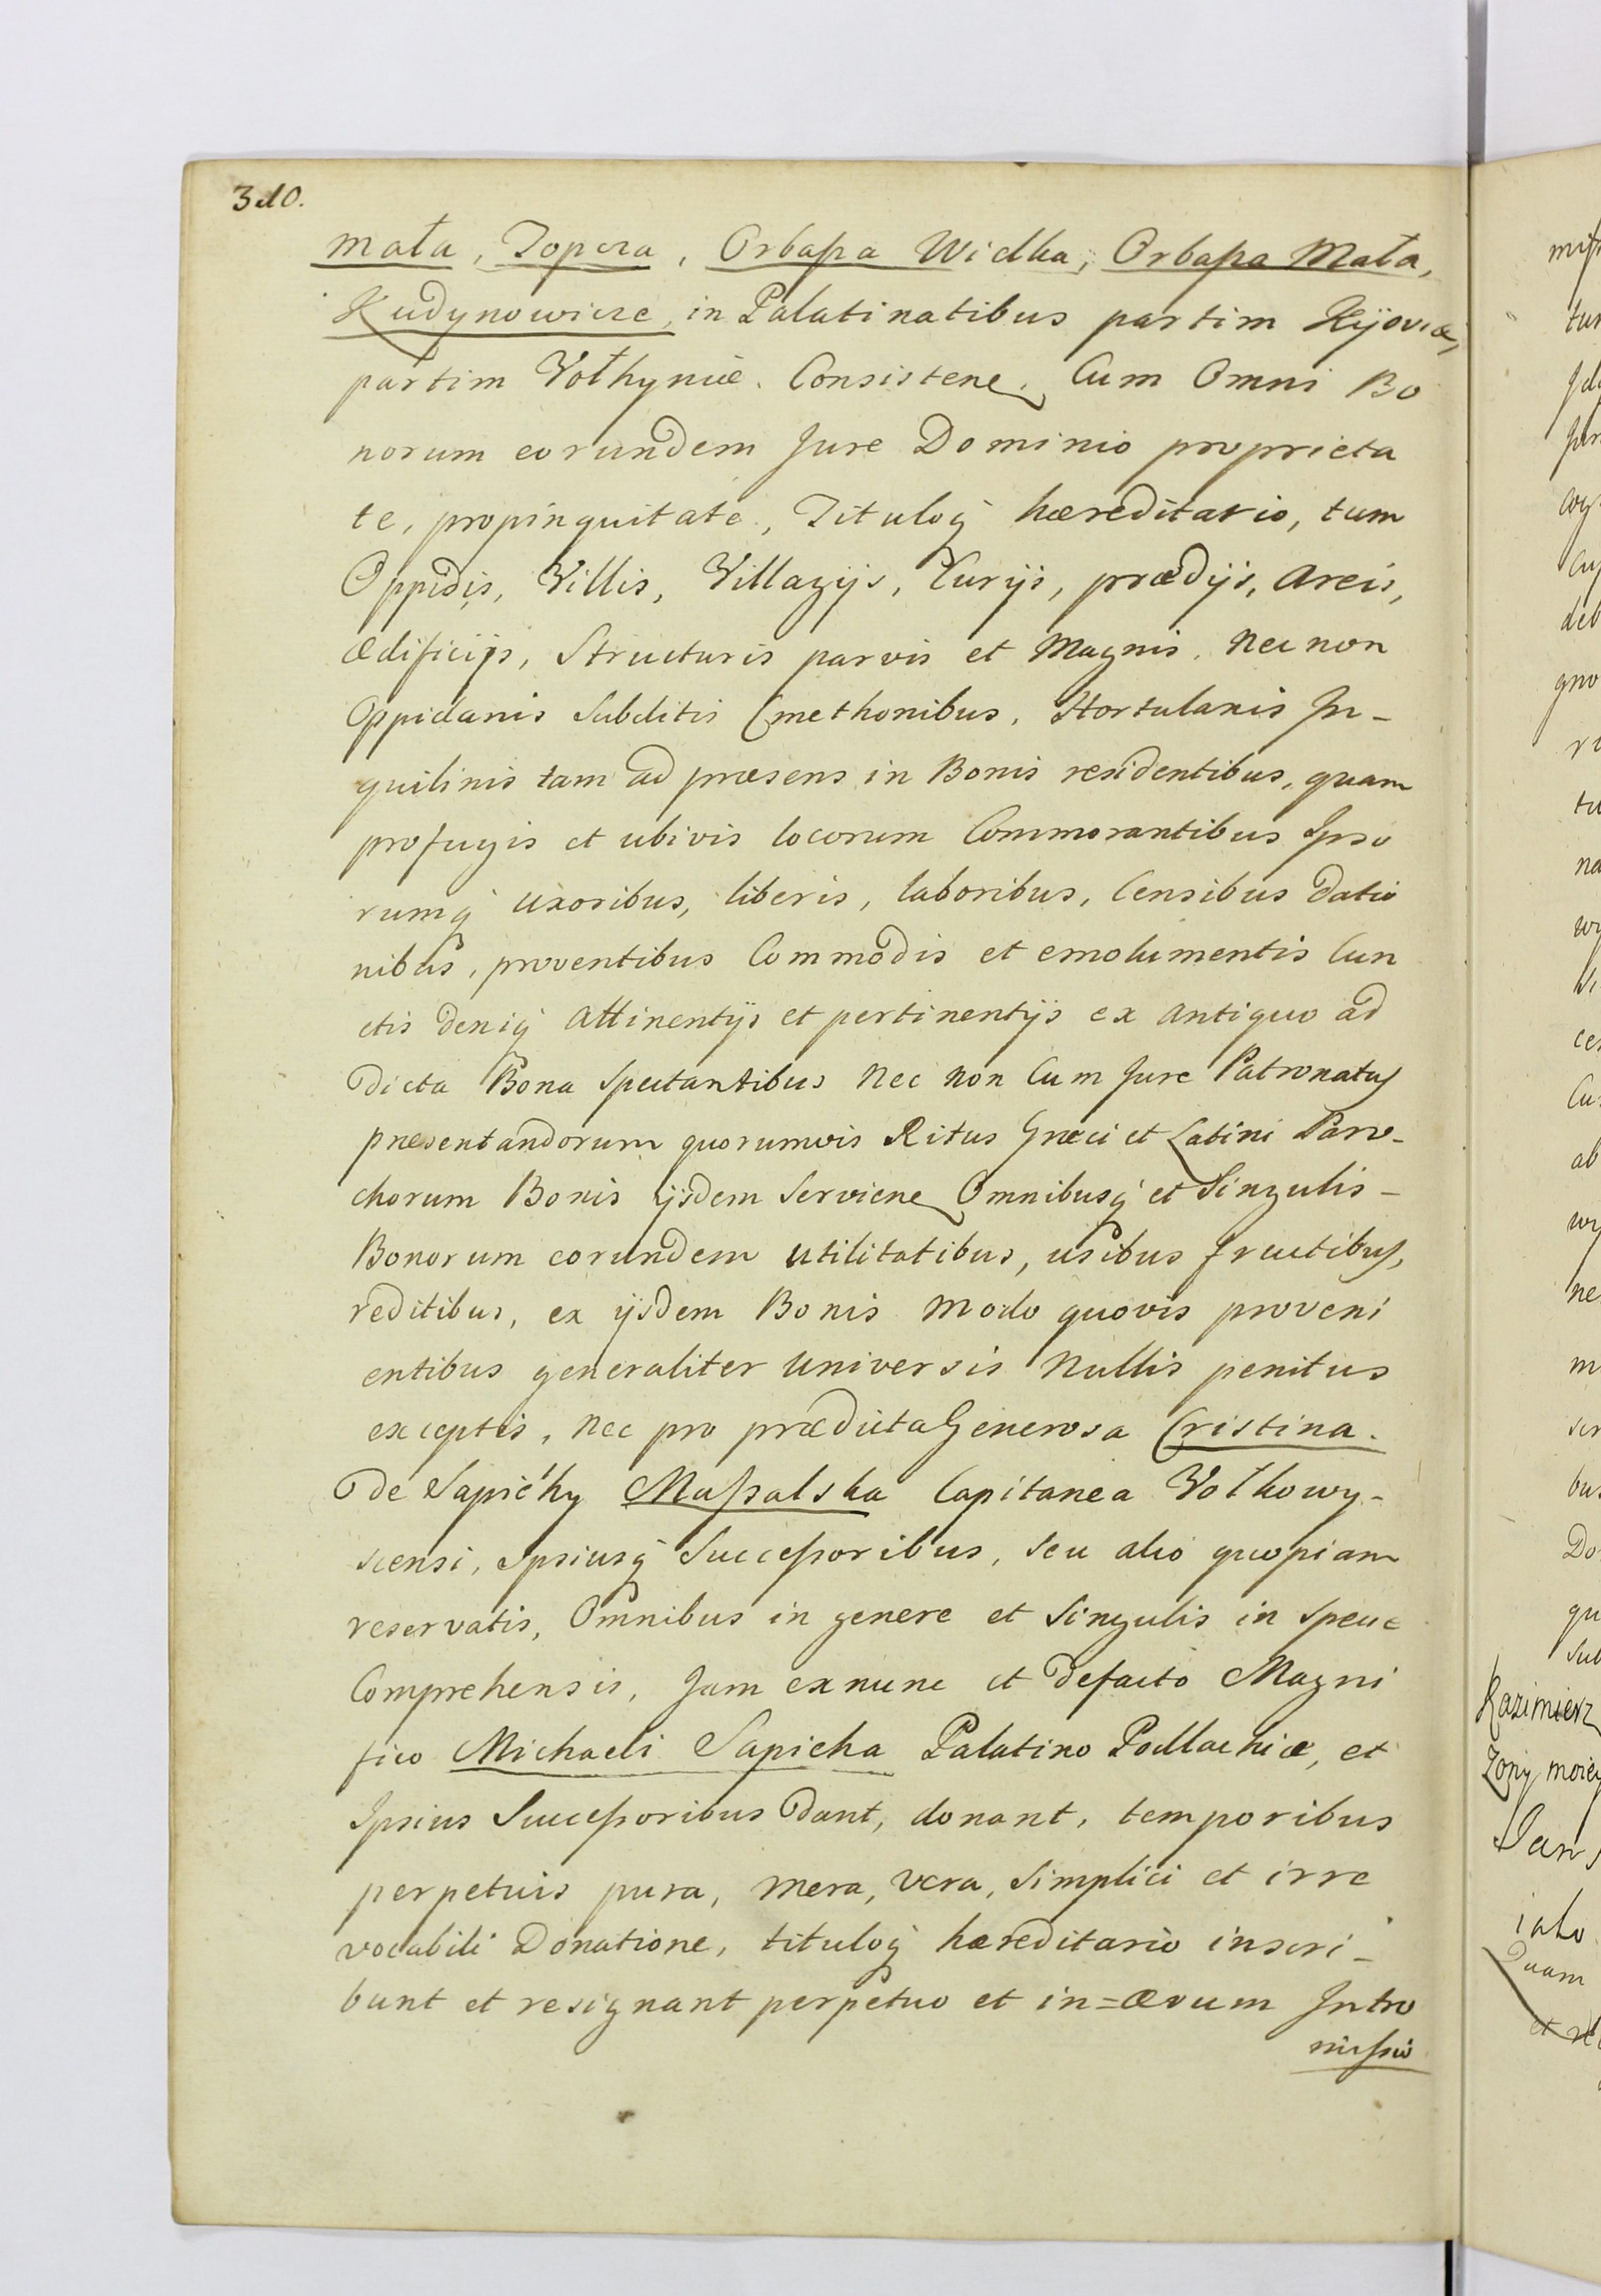 310.
Mała, Topora, Orbaſsa Wielka, Orbaſsa Mała,
Kudynowicze, in Palatinatibus partim Kijoviæ,
partim Vołhyniæ. Consisten. Cum Omni Bo
norum eorundem Jure Dominio proprieta
te, propinquitate, Tituloq́ hæreditario, tum
Oppidis, Villis, Villagijs, Curijs, prædijs, Areis,
ædificijs, Structuris parvis et Magnis. Nec non
Oppidanis Subditis Cmethonibus, Hortulanis In-
quilinis tam ad præsens in Bonis residentibus, quam
profugis et ubivis locorum Commorantibus Ipso
rumq́ uxoribus, liberis, laboribus, Censibus datio
nibus, proventibus Commodis et emolumentis Cun
ctis deniq́ Attinentijs et pertinentijs ex antiquo ad
dicta Bona Spectantibus Nec non Cum Jure Patronatus
præsentandorum quorumvis Ritus Græci et Latini Paro-
chorum Bonis ijsdem Servien Omnibusq́ et Singulis-
Bonorum eorundem utilitatibus, usibus fructibus,
reditibus, ex ijsdem Bonis Modo quovis proveni
entibus generaliter Universis Nullis penitus
exceptis, Nec pro prædicta Generosa Cristina.
de Sapiéhy Maſsalska Capitanea Vołkowy-
scensi, Ipsiusq́ Succeſsoribus, seu alio quopiam
reservatis, Omnibus in genere et Singulis in Specie
Comprehensis, Jam ex nunc et defacto Magni
fico Michaeli Sapieha Palatino Podlachiæ, et
Ipsius Succeſsoribus dant, donant, temporibus
perpetuis pura, mera, vera, Simplici et irre
vocabili Donatione, tituloq́ hæreditario inscri-
bunt et resignant perpetuo et in=ævum Intro
miſsio
Kazimierz
Zony moiey
Jan
iako
Quam